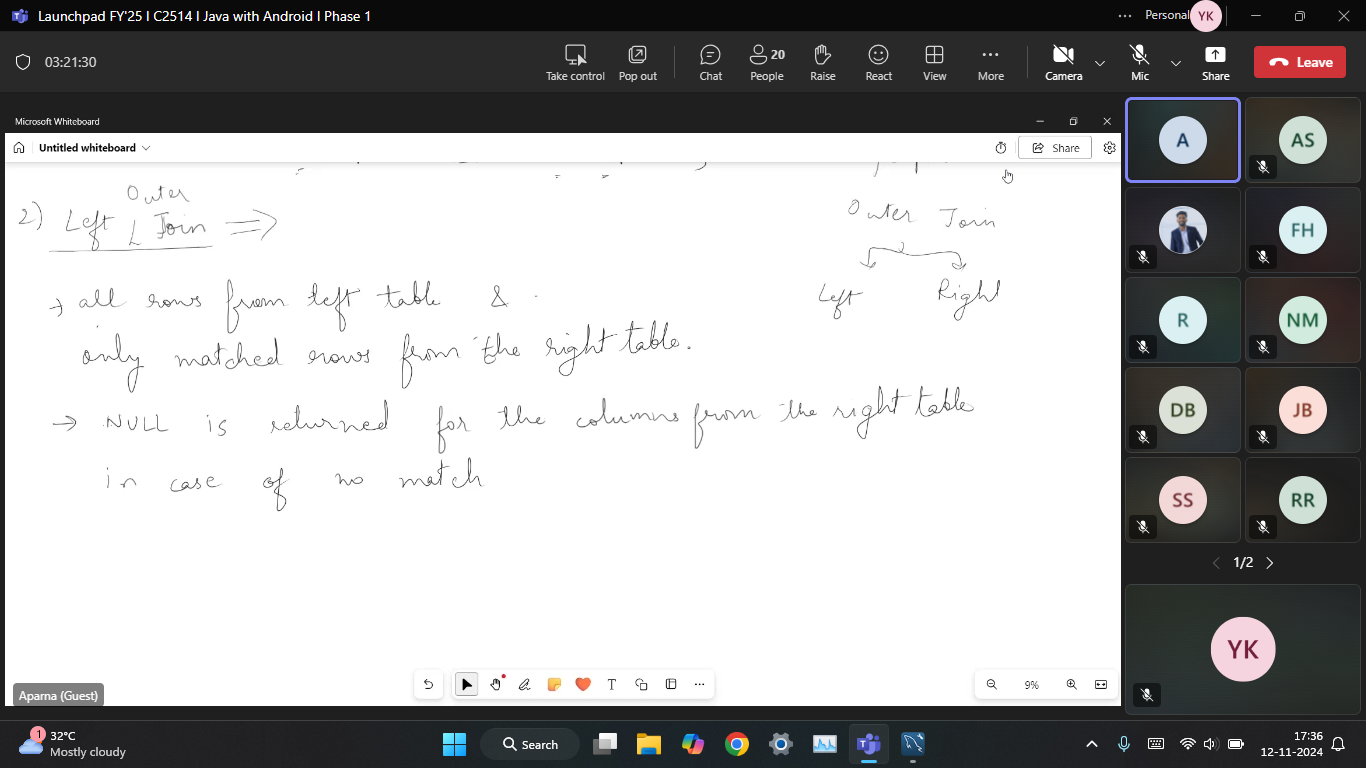 Launchpad FY'25 I C2514 I Java with Android I Phase 1
Personal
YK
03:21:30
20
Take control
Pop out
Chat
People
Raise
React
View
More
Camera
Mic
Share
Leave
Microsoft Whiteboard
Untitled whiteboard
Share
Outer
2) Left Join ⇒
Outer Join
Left Right
→ all rows from left table &
only matched rows from the right table.
→ NULL is returned for the columns from the right table
in case of no match
A
AS
FH
R
NM
DB
JB
SS
RR
1/2
YK
Aparna (Guest)
9%
1
32°C
Mostly cloudy
Search
17:36
12-11-2024